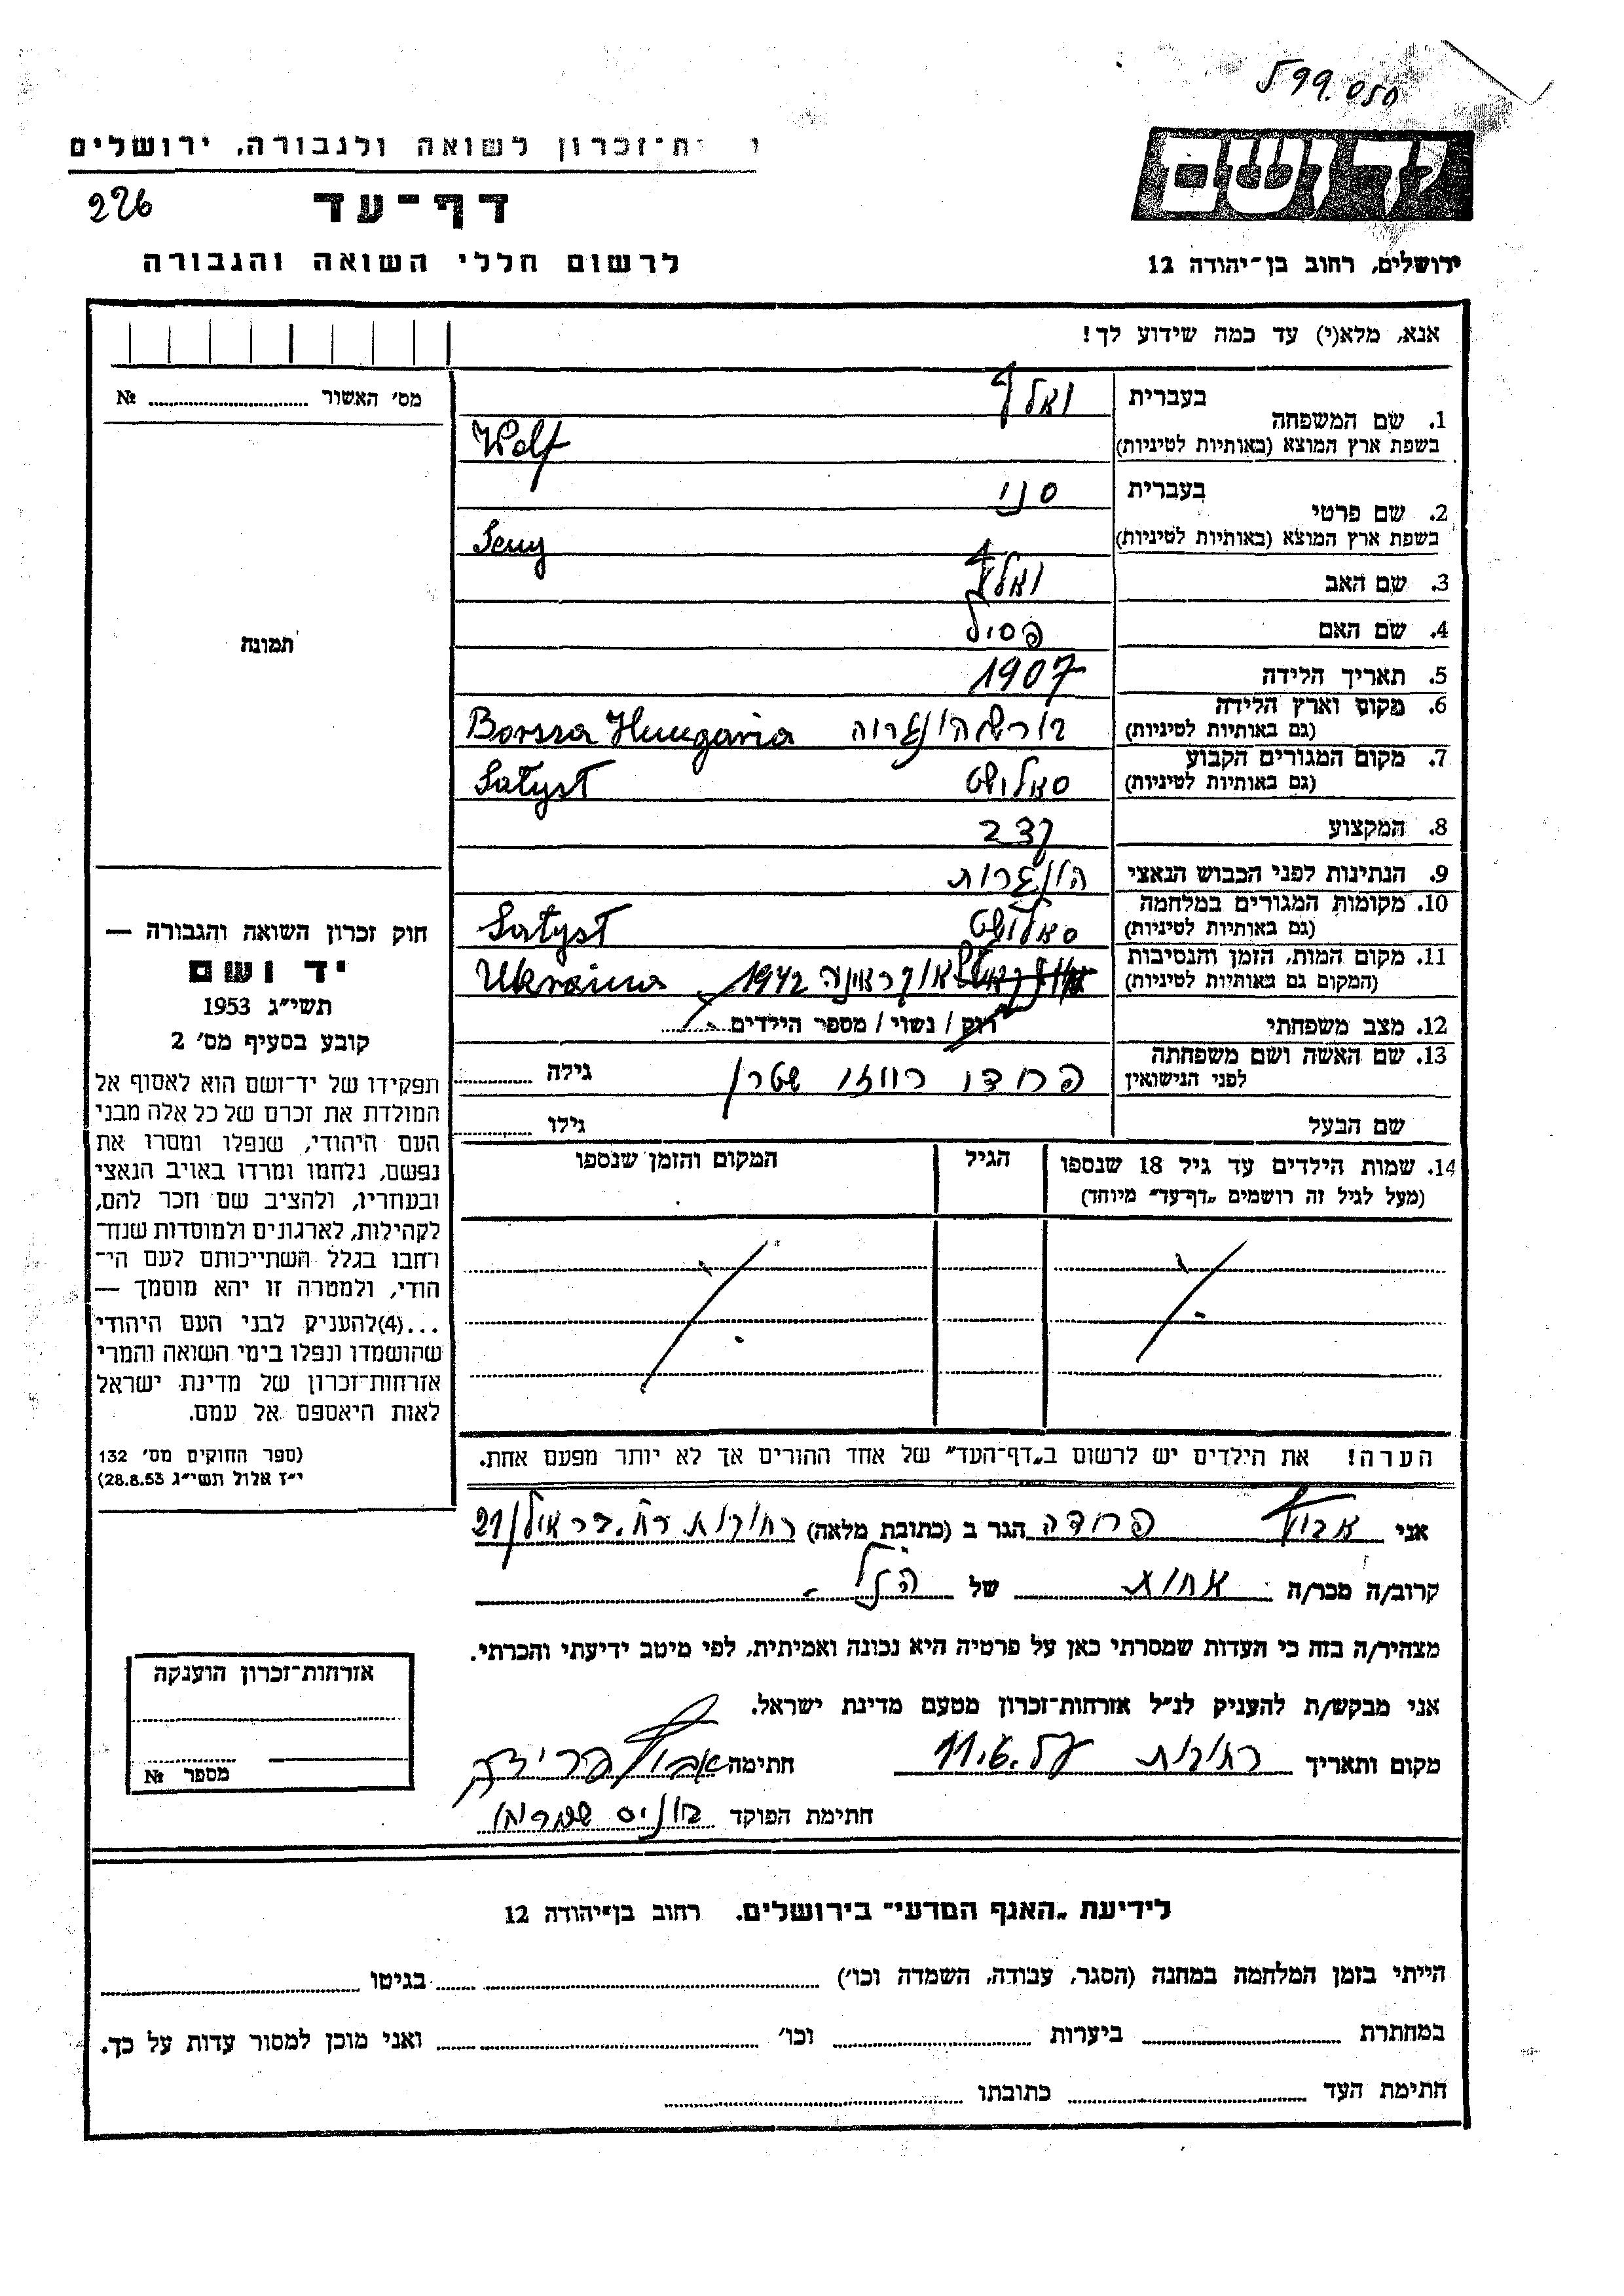 599.050
ת־זכרון לשואה ולגבורה, ירושלים
226
דף־עד
לרשום חללי השואה והגבורה
ירושלים, רחוב בן־יהודה 12
אנא, מלא(י) עד כמה שידוע לך!
מס׳ האשור № 
1. שם המשפחה
בעברית ואלף
בשפת ארץ המוצא (באותיות לטיניות) Wolf
2. שם פרטי
בעברית סני
בשפת ארץ המוצא (באותיות לטיניות) Seny
3. שם האב ואלף
4. שם האם פסיל
5. תאריך הלידה 1907
6. מקום וארץ הלידה
(גם באותיות לטיניות) בורשה הונגרוה Borsza Hungaria
7. מקום המגורים הקבוע
(גם באותיות לטיניות) סאלושט Satyst
8. המקצוע קצב
9. הנתינות לפני הכבוש הנאצי הונגרות
10. מקומות המגורים במלחמה
(גם באותיות לטיניות) סאלושט Satyst
11. מקום המות, הזמן והנסיבות
(המקום גם באותיות לטיניות) אוקראינה 1942 Ukraina
12. מצב משפחתי רוק / נשוי / מספר הילדים
13. שם האשה ושם משפחתה
לפני הנישואין שטרן גילה
שם הבעל גילו
14. שמות הילדים עד גיל 18 שנספו הגיל המקום והזמן שנספו
(מעל לגיל זה רושמים „דף־עד״ מיוחד)
הערה! את הילדים יש לרשום ב„דף־העד״ של אחד ההורים אך לא יותר מפעם אחת.
תמונה
חוק זכרון השואה והגבורה —
יד ושם
תשי״ג 1953
קובע בסעיף מס׳ 2
תפקידו של יד־ושם הוא לאסוף אל
המולדת את זכרם של כל אלה מבני
העם היהודי, שנפלו ומסרו את
נפשם, נלחמו ומרדו באויב הנאצי
ובעוזריו, ולהציב שם וזכר להם,
לקהילות, לארגונים ולמוסדות שנח־
רחבו בגלל השתייכותם לעם הי־
הודי, ולמטרה זו יהא מוסמך —
...(4)להעניק לבני העם היהודי
שהושמדו ונפלו בימי השואה והמרי
אזרחות־זכרון של מדינת ישראל
לאות היאספם אל עמם.
(ספר החוקים מס׳ 132
י״ז אלול תשי״ג 28.8.53)
אני פרודה הגר ב (כתובת מלאה) רחובות
קרוב/ה מכר/ה אחות של הנ״ל
מצהיר/ה בזה כי העדות שמסרתי כאן על פרטיה היא נכונה ואמיתית, לפי מיטב ידיעתי והכרתי.
אני מבקש/ת להעניק לנ״ל אזרחות־זכרון מטעם מדינת ישראל.
מקום ותאריך רחובות 11.6. חתימה
חתימת הפוקד
אזרחות־זכרון הוענקה
מספר №
לידיעת „האגף המדעי״ בירושלים. רחוב בן־יהודה 12
הייתי בזמן המלחמה במחנה (הסגר, עבודה, השמדה וכו׳) בגיטו
במחתרת ביערות וכו׳ ואני מוכן למסור עדות על כך.
חתימת העד כתובתו